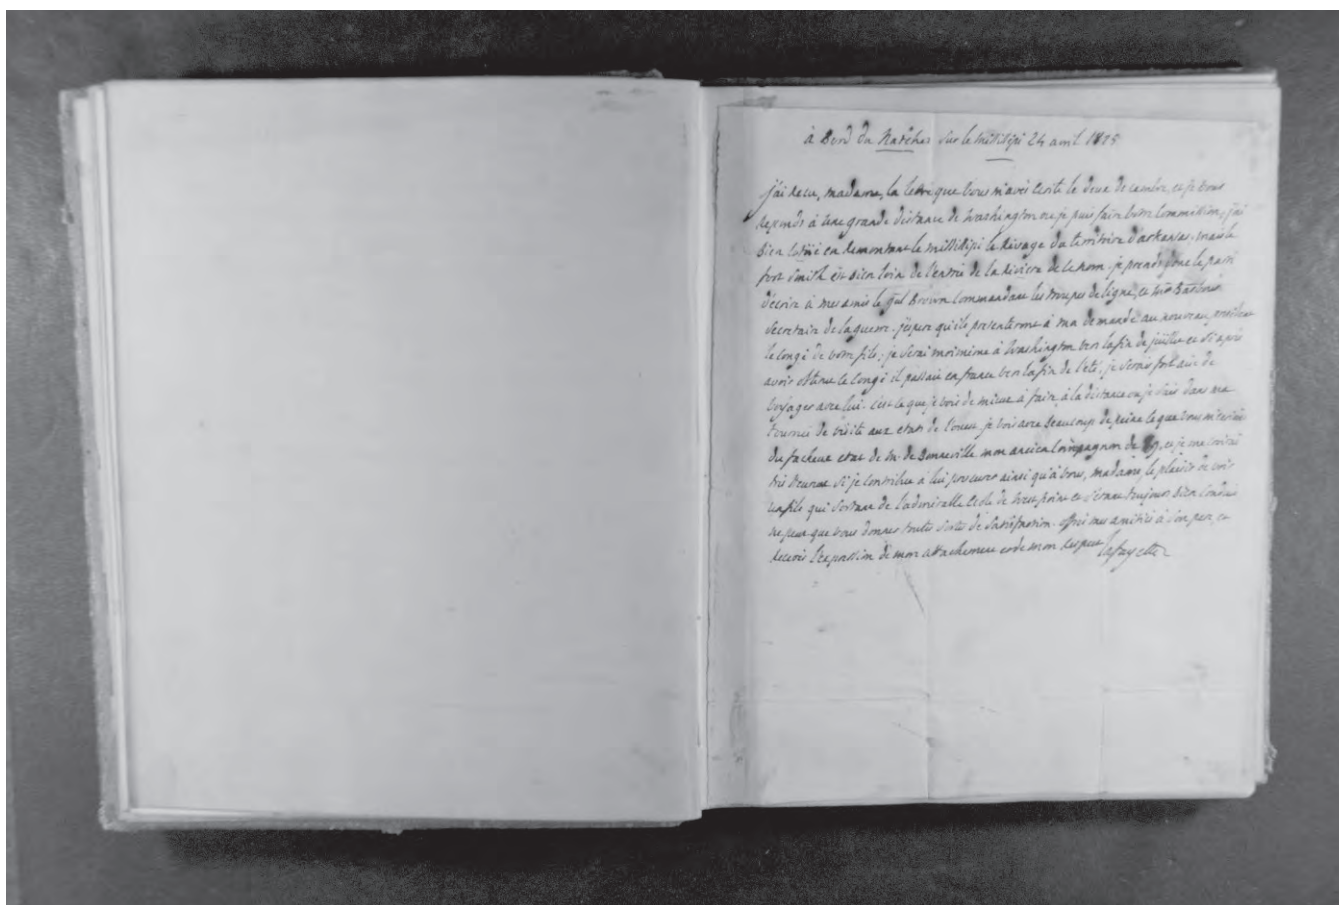 à Bord du Natchez sur le Missisipi 24 avril 1825
j'ai recu, madame, la lettre que vous m'avés ecrite le deux decembre, et je vous
reponds à une grande distance de Washington ou je puis faire votre Commission; j'ai
bien cotoié en remontant le missisipi le rivage du territoire d'arkansas. mais le
fort Smith est bien loin de l'entrée de la riviere de ce nom. je prends donc le parti
d'écrire à mes amis le gal Brown Commandant les troupes de ligne, et Mr Barbour
Secretaire de la guerre. j'espere qu'ils presenteront à ma demande au nouveau president
le Congé de votre fils; je serai moi même à Washington vers la fin de juillet et si après
avoir obtenu le Congé il passait en france vers la fin de l'été, je serais fort aise de
voyager avec lui. c'est ce que je vois de mieux à faire à la distance ou je suis dans ma
tournée de visite aux etats de l'ouest. je vois avec beaucoup de peine ce que vous
du facheux etat de Mr de Bonneville mon ancien Compagnon de 89. et je me croirai
très heureux si je contribue à lui procurer ainsi qu'à vous, madame, le plaisir de voir
un fils qui sortant de l'admirable Ecole de West point et s'etant toujours bien Conduit
ne peut que vous donner toutes sortes de satisfaction. offrés mes amitiés à son pere, et
recevés l'expression de mon attachement et de mon respect Lafayette